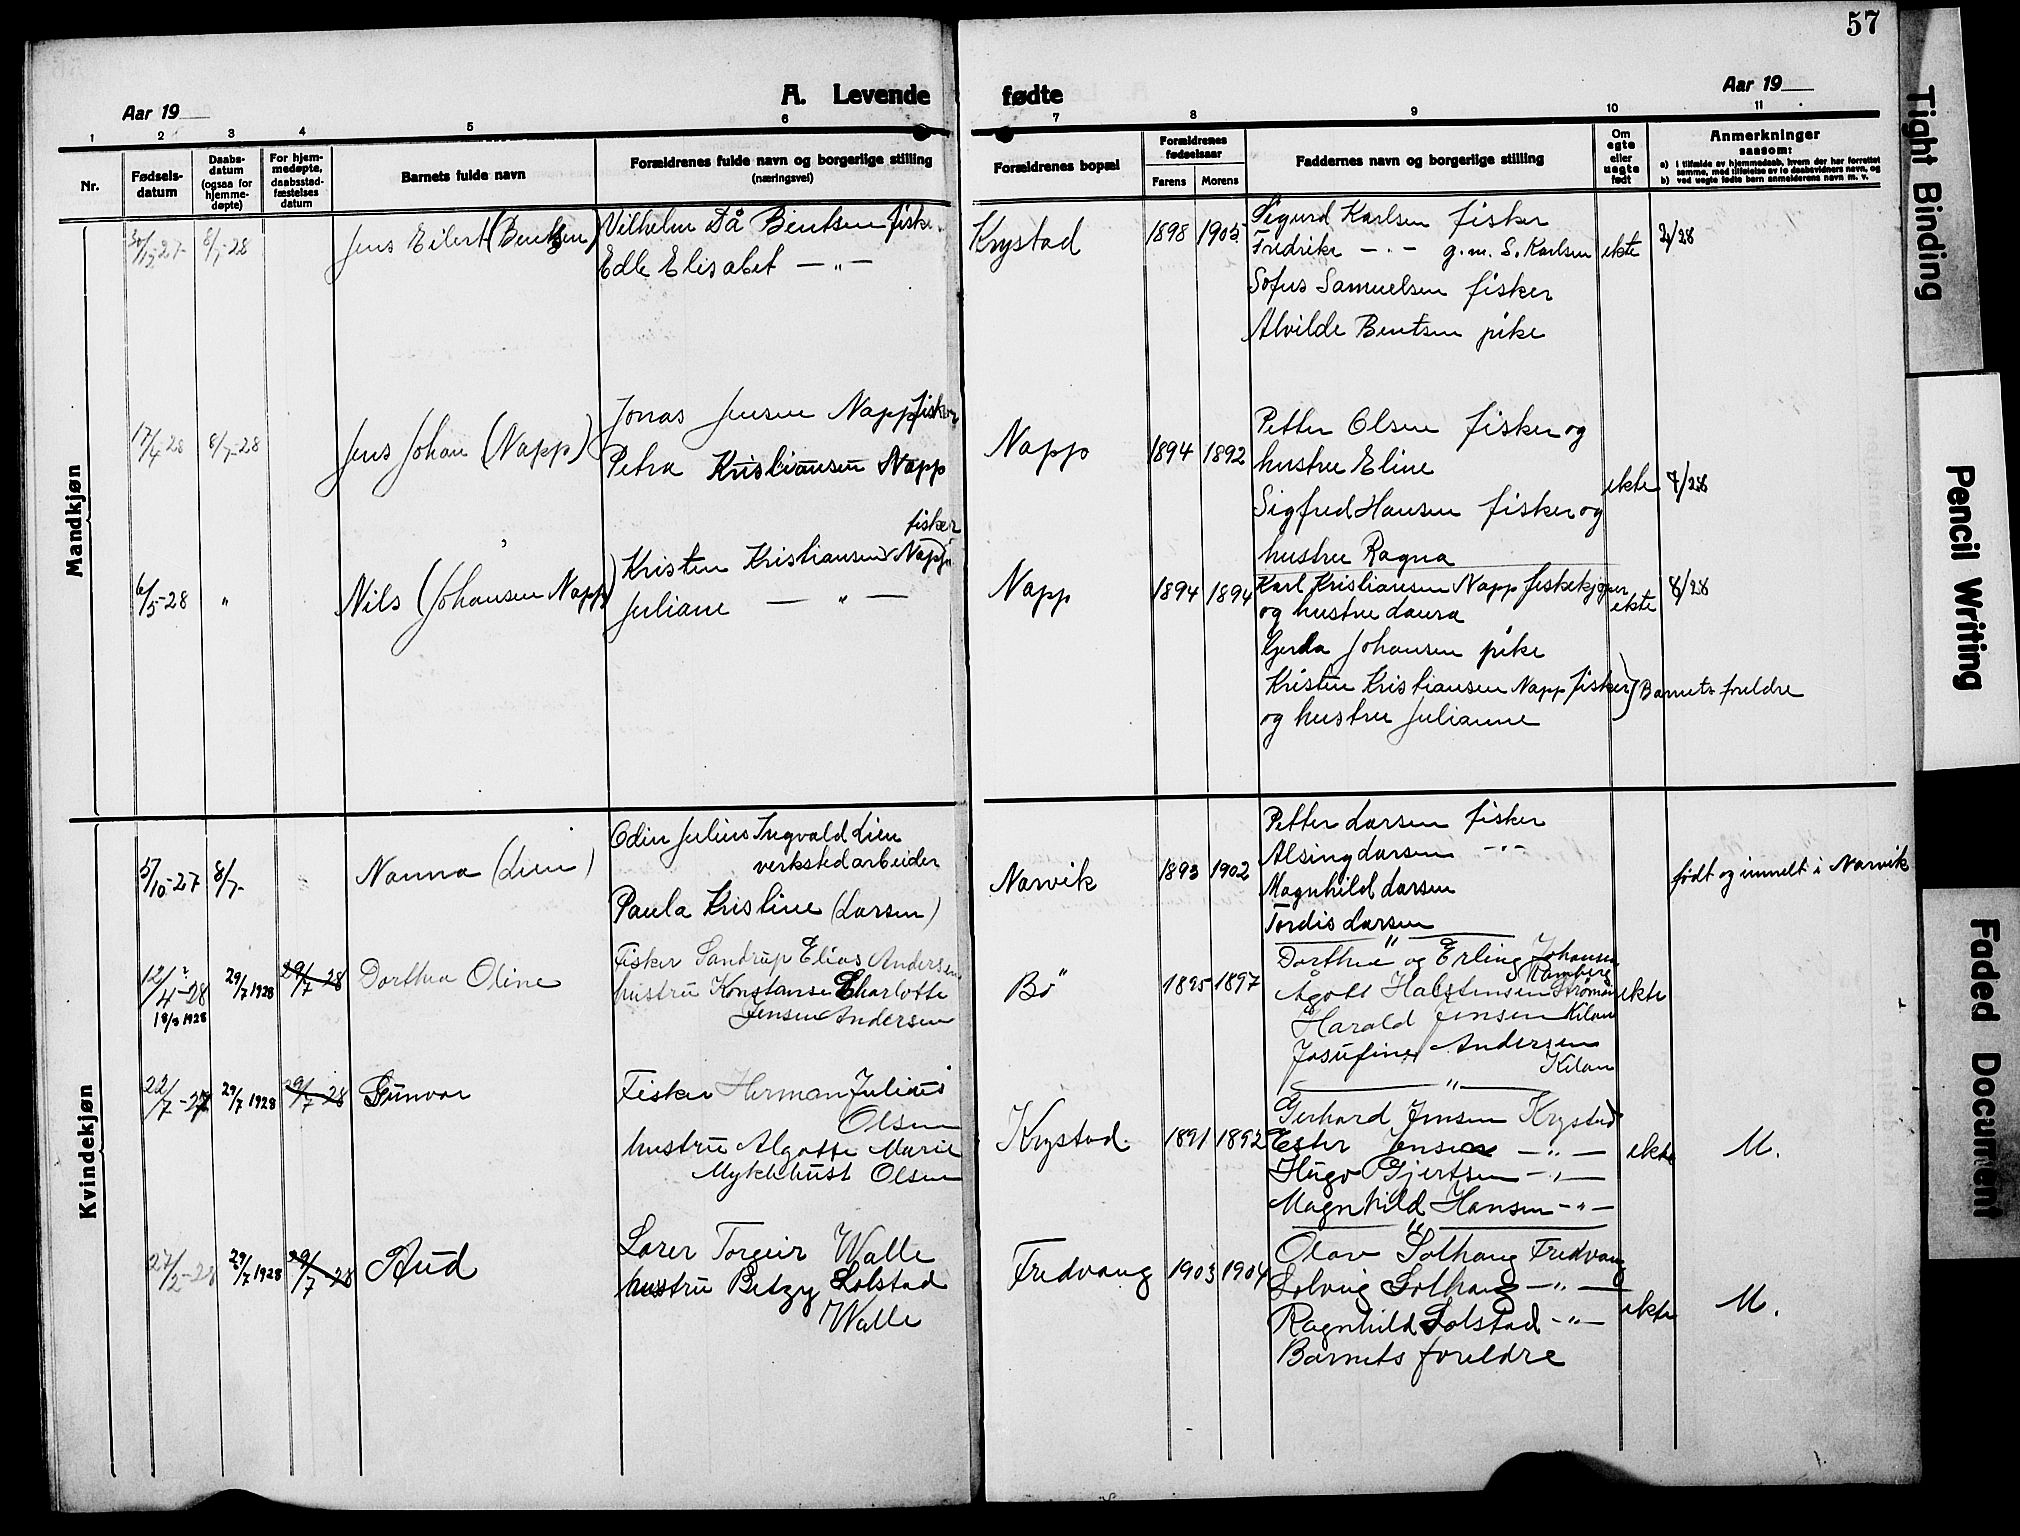 57
Aar 19
A. Levende
fødte
Aar 19
1 2 3 4 5 6
7 8 9 10 11
Nr.
Fødsels-
datum
Daabs-
datum
(ogsaa for
hjemme-
døpte)
For hjem-
medøpte,
daabsstad-
fæstelses
datum
Barnets fulde navn
Forældrenes fulde navn og borgerlige stilling
(næringsvei)
Forældrenes bopæl
Forældrenes
fødselsaar
Farens Morens
Faddernes navn og borgerlige stilling
Om
egte
eller
uegte
født
Anmerkninger
saasom:
a) i tilfælde av hjemmedaab, hvem der har forrettet
samme, med tilføielse av to daabsvidners navn, og
b) ved uegte fødte barn anmelderens navn m. v.
Mandkjøn
30/12-27 8/7-28
Jens Eilert (Bentsen)
Vilhelm Då Bentsen fisker
Edle Elisabet — " —
Krystad
1898 1905
Sigurd Karlsen fisker
Fredrikke — " — g.m. S. Karlsen
Sofus Samuelsen fisker
Alvilde Bentsen pike
ekte
2/28
17/4-28 8/7-28
Jens Johan (Napp)
Jonas Jensen Napp fisker
Petra Kristiansen Napp
Napp
1894 1892
Petter Olsen fisker og
hustru Eline
Sigfred Hansen fisker og
hustru Ragna
ekte
7/28
6/5-28 "
Nils (Johansen Napp)
fisker
Kristen Kristiansen Napp
Juliane — " —
Napp
1894 1894
Karl Kristiansen Napp fiskekjøper
og hustru Laura
Gerda Johansen pike
Kristen Kristiansen Napp fisker
og hustru Julianne
Barnets foreldre
ekte
8/28
Kvindekjøn
5/10-27 8/7-
Nanna (Lien)
Odin Julius Ingvald Lien
verkstedarbeider
Paula Kristine (Larsen)
Narvik
1893 1902
Petter Larsen fisker
Alsing Larsen - " -
Magnhild Larsen
Tordis Larsen
født og inmelt i Narvik
12/4-28
18/3 1928
29/7 1928 29/7-28
Dorthea Oline
Fisker Sandrup Elias Andersen
hustru Konstanse Charlotte
Jensen Andersen
Bø
1895 1897
Dorthea og Erling Johansen
Ramberg
Ågott Halstensen Strømen
Harald Jensen Kilan
Josefine Andersen
Kilan
ekte
22/7-27 29/7 1928 29/7-28
Gunvor
Fisker Herman Julius
Olsen
hustru Algotte Marie
Myklebust Olsen
Krystad
1891 1892
Gerhard Jensen Krystad
Ester Jensen — " —
Hugo Gjertsen — " —
Magnhild Hansen - " -
ekte
M.
27/2-28 29/7 1928 29/7-28
Aud
Lærer Torgeir Walle
hustru Betzy Solstad
Walle
Fredvang
1903 1904
Olav Solhaug Fredvang
Solveig Solhaug — " —
Ragnhild Solstad - " -
Barnets foreldre
ekte
M.
Tight Binding
Pencil Writing
Faded Document